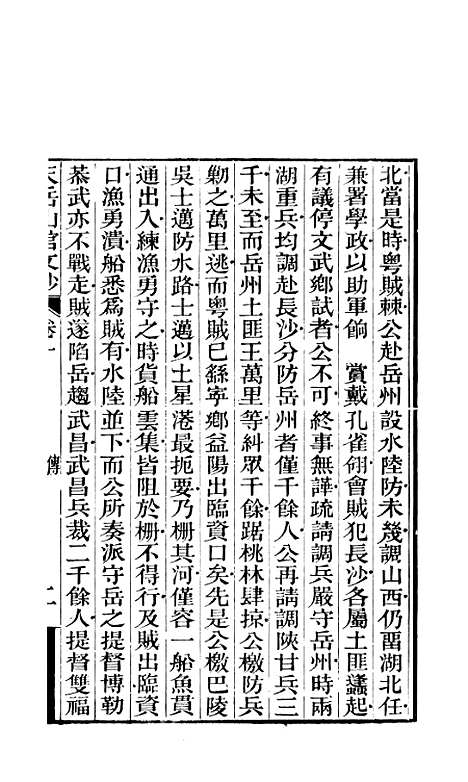 北當是時粵賊棘公赴岳州設水陸防未幾調山西仍畱湖北任
兼署學政以助軍餉 賞戴孔雀翎會賊犯長沙各屬土匪蠭起
有議停文武鄉試者公不可終事無譁疏請調兵嚴守岳州時兩
湖重兵均調赴長沙分防岳州者僅千餘人公再請調陝甘兵三
千未至而岳州土匪王萬里等糾眾千餘踞桃林肆掠公檄防兵
勦之萬里逃而粵賊已繇寧鄉益陽出臨資口矣先是公檄巴陵
吳士邁防水路士邁以土星港最扼要乃柵其河僅容一船魚貫
通出入練漁勇守之時貨船雲集皆阻於柵不得行及賊出臨資
口漁勇潰船悉為賊有水陸並下而公所奏派守岳之提督博勒
恭武亦不戰走賊遂陷岳趨武昌武昌兵裁二千餘人提督雙福
天岳山館文鈔 卷十 傳 二